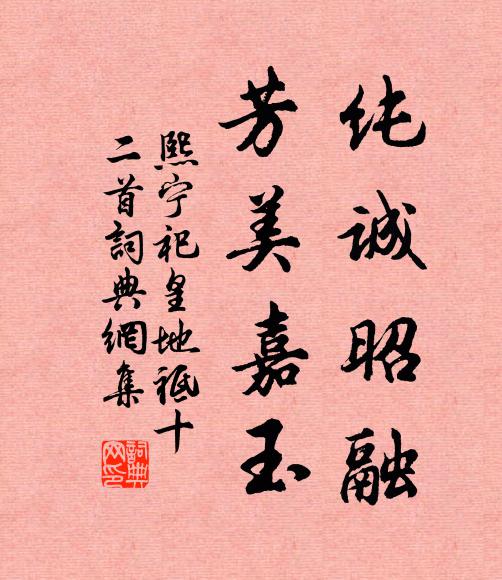 纯诚昭融
芳美嘉玉
熙宁祀皇地祇十
二首詞典網集
詞典
网印